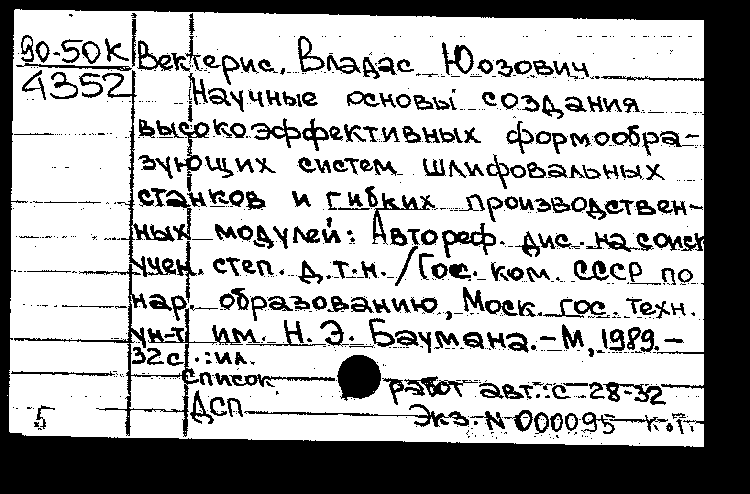 90-50К Вектерис, Владас Юозович
4352 Научные основы создания
высокоэффективных формообра-
зующих систем шлифовальных
станков и гибких производствен-
ных модулей: Автореф. дис. на соиск
учен. степ. д.т.н. / Гос. ком. СССР по
нар. образованию, Моск. гос. техн.
ун-т им. Н. Э. Баумана. - М, 1989. -
32 с. : ил.
Список работ авт.: с 28-32
ДСП Экз. N 000095 к.п.
5